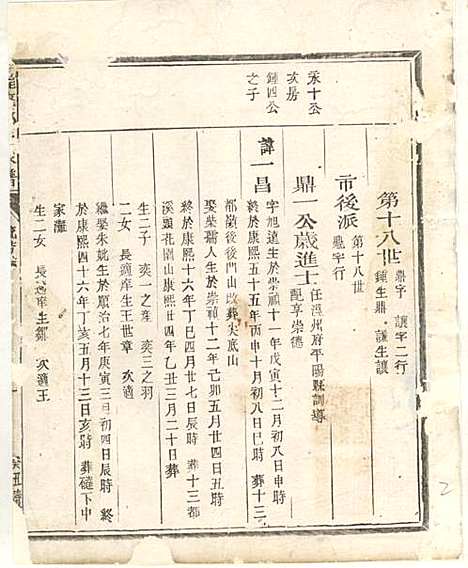 第十八世 鼎字 讓字二行
鍾生鼎 謙生讓
市後派 第十八世
鼎字行
鼎一公歲進士 任溫州府平陽縣訓導
配享崇德
汞十公
亥房
鍾四公
之子
諱一昌 字旭遠生於崇禎十一年戊寅十二月初八日申時
終於康熙五十五年丙申十月初八日巳時 葬十三
都嶺後後門山改葬尖底山
娶柴孺人生於崇禎十二年己卯五月廿四日丑時
終於康熙十六年丁巳四月廿七日辰時 葬十三都
溪頭花園山康熙廿四年乙丑三月二十日葬
生二子 奕一之産 奕三之羽
二女 長適庠生王世章 次適
繼娶朱姚生於順治七年庚寅三月初四日辰時 終
於康熙四十六年丁亥五月十三日亥時 葬礚下中
家灘
生二女 長適庠生鄒 次適王